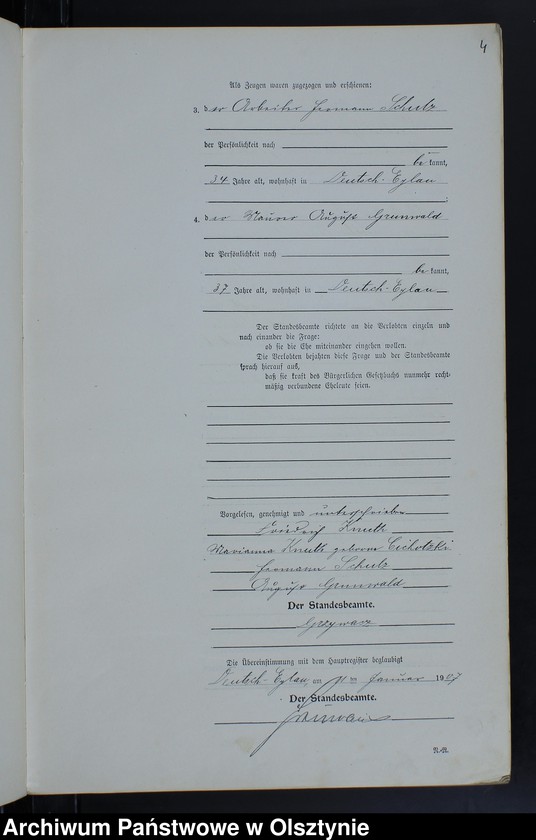 4
Als Zeugen waren zugezogen und erschienen:
3. der Arbeiter Hermann Schulz
der Persönlichkeit nach
bekannt,
34 Jahre alt, wohnhaft in Deutsch-Eylau
4. der Maurer August Grunwald
der Persönlichkeit nach
bekannt,
37 Jahre alt, wohnhaft in Deutsch-Eylau
Der Standesbeamte richtete an die Verlobten einzeln und
nach einander die Frage:
ob sie die Ehe miteinander eingehen wollen.
Die Verlobten bejahten diese Frage und der Standesbeamte
sprach hierauf aus,
daß sie kraft des Bürgerlichen Gesetzbuchs nunmehr recht-
mäßig verbundene Eheleute seien.
Vorgelesen, genehmigt und unterschrieben
Friedrich Knuth
Marianna Knuth geborene Cichotzki
Hermann Schulz
August Grunwald
Der Standesbeamte.
Die Übereinstimmung mit dem Hauptregister beglaubigt
Deutsch-Eylau, am Januar 1907
Der Standesbeamte.
Archiwum Państwowe w Olsztynie